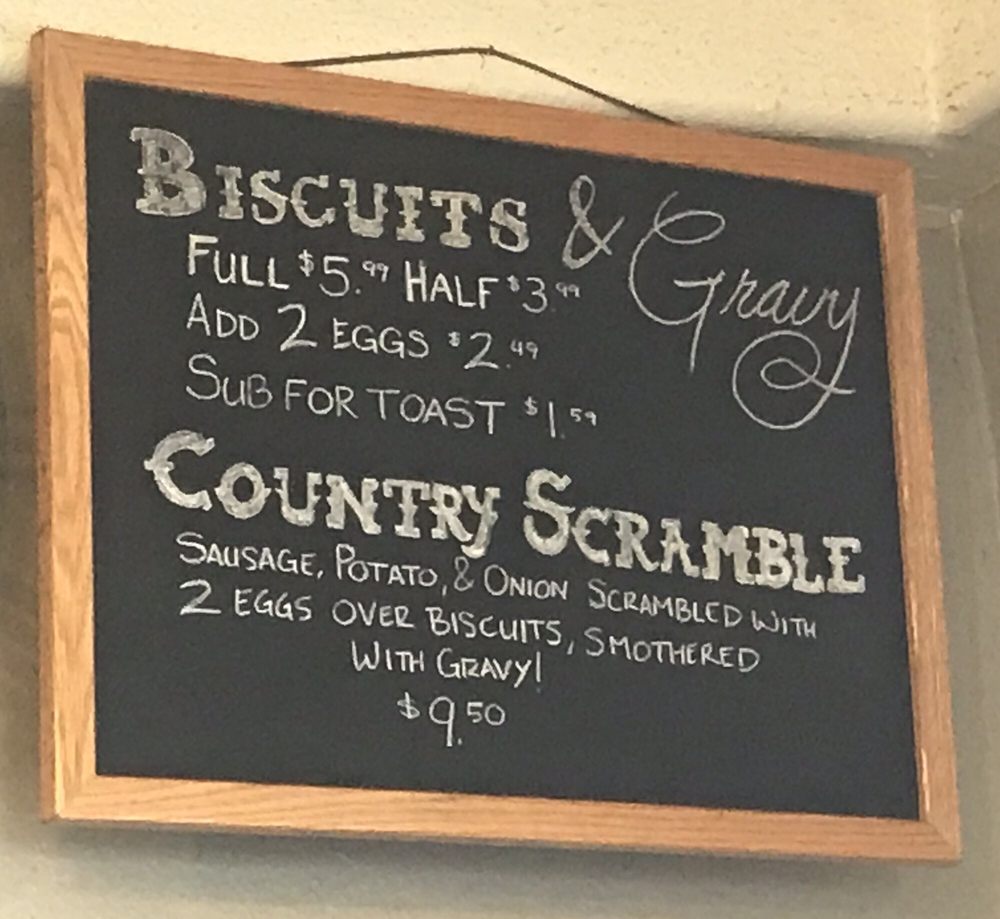 BISCUITS & Gravy
FULL $5.99 HALF $3.99
ADD 2 EGGS $2.49
SUB FOR TOAST $1.59
COUNTRY SCRAMBLE
SAUSAGE, POTATO, & ONION SCRAMBLED WITH
2 EGGS OVER BISCUITS, SMOTHERED
WITH GRAVY!
$9.50